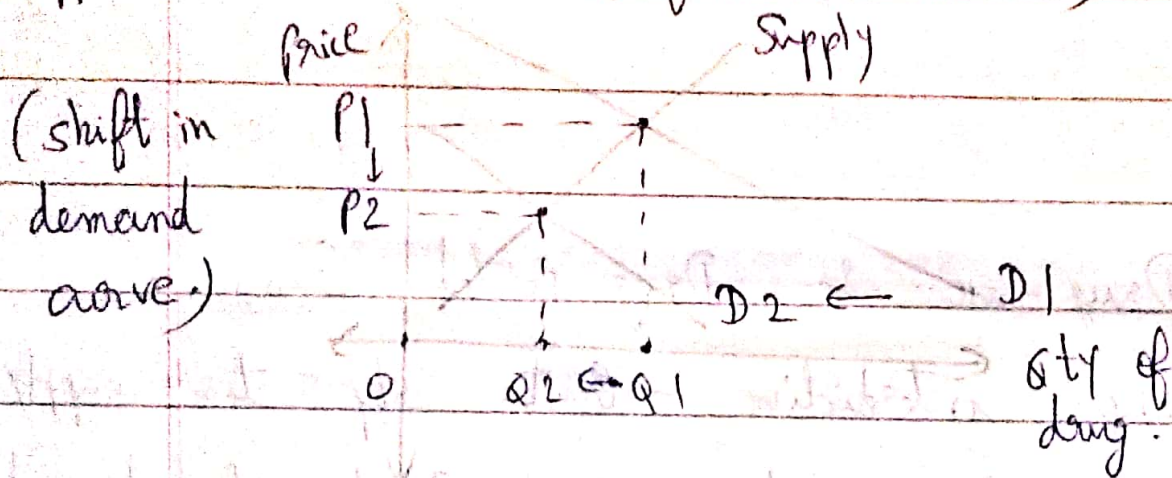 price Supply
(shift in P1
demand P2
curve.) D2 ← D1
O Q2 ← Q1 Qty of
drug.